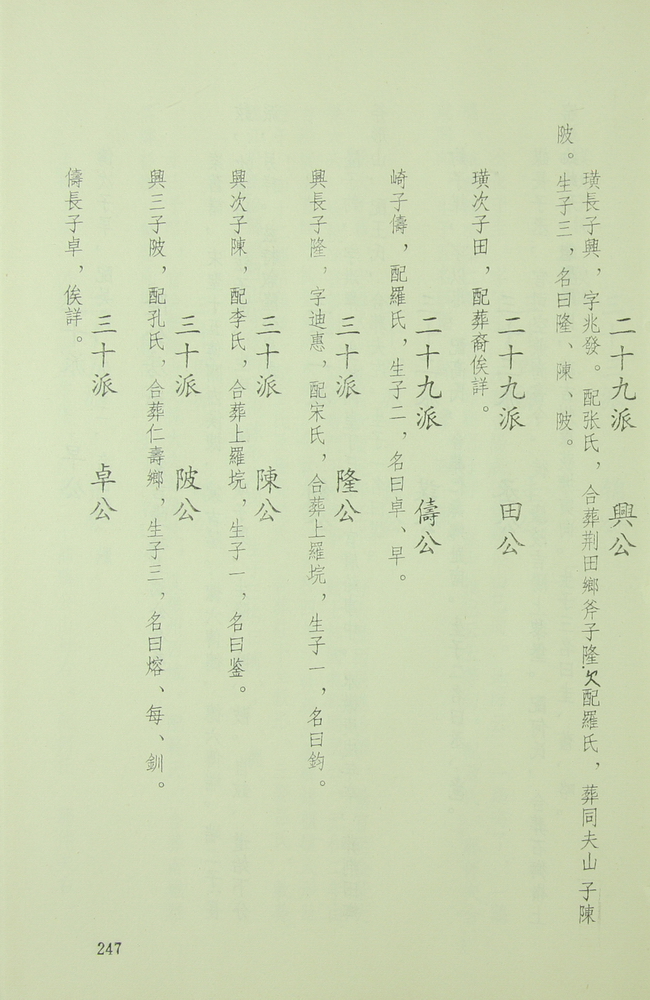 二十九派　興公
璜長子興，字兆發。配张氏，合葬荆田鄉斧子隆欠配羅氏，葬同夫山子陳
陂。生子三，名曰隆、陳、陂。
二十九派　田公
璜次子田，配葬裔俟詳。
二十九派　儔公
崎子儔，配羅氏，生子二，名曰卓、早。
三十派　隆公
興長子隆，字迪惠，配宋氏，合葬上羅垸，生子一，名曰鈞。
三十派　陳公
興次子陳，配李氏，合葬上羅垸，生子一，名曰鉴。
三十派　陂公
興三子陂，配孔氏，合葬仁壽鄉，生子三，名曰熔、每、釧。
三十派　卓公
儔長子卓，俟詳。
247